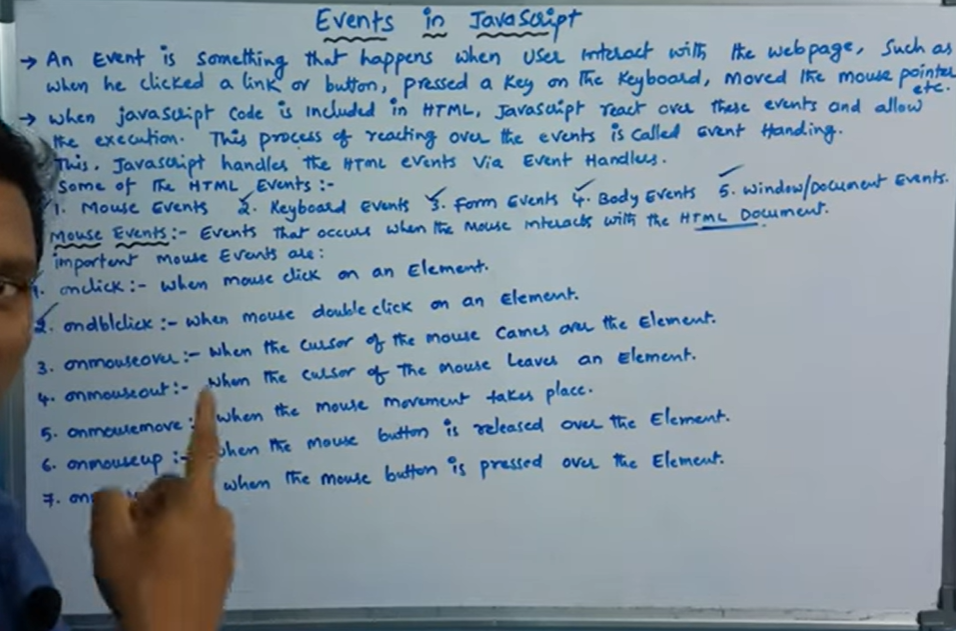 Events in JavaScript
→ An Event is something that happens when user interact with the webpage, such as
when he clicked a link or button, pressed a key on the keyboard, moved the mouse pointer
etc.
→ when javascript code is included in HTML, JavaScript react over these events and allow
the execution. This process of reacting over the events is called Event Handing.
This, Javascript handles the HTML events via Event Handlers.
Some of the HTML Events :-
1. Mouse Events 2. Keyboard Events 3. Form Events 4. Body Events 5. Window/Document Events.
Mouse Events:- Events that occurs when the mouse interacts with the HTML Document.
important mouse Events are:
1. onclick :- when mouse click on an Element.
2. ondblclick :- when mouse double click on an Element.
3. onmouseover :- when the cursor of the mouse cames over the Element.
4. onmouseout :- when the cursor of the mouse leaves an Element.
5. onmousemove : when the mouse movement takes place.
6. onmouseup :- when the mouse button is released over the Element.
7. on when the mouse button is pressed over the Element.